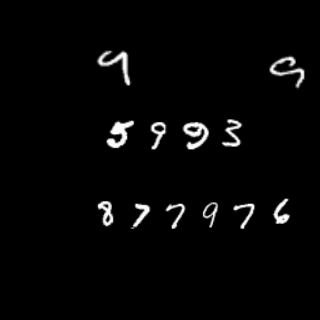 9 9
5993
877976